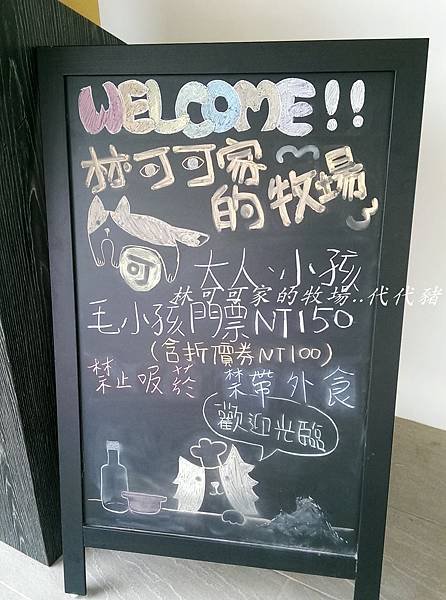 WELCOME!!
林可可家
的牧場
可
大人、小孩
林可可家的牧場..代代豬
毛小孩門票NT150
(含折價券NT100)
禁止吸菸 禁帶外食
歡迎光臨